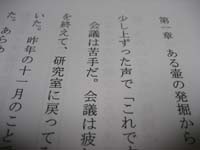 第一章 ある壺の発掘から
少し上ずった声で「これで
会議は苦手だ。会議は疲
を終えて、研究室に戻って
いた。昨年の十一月のこと
た。あら